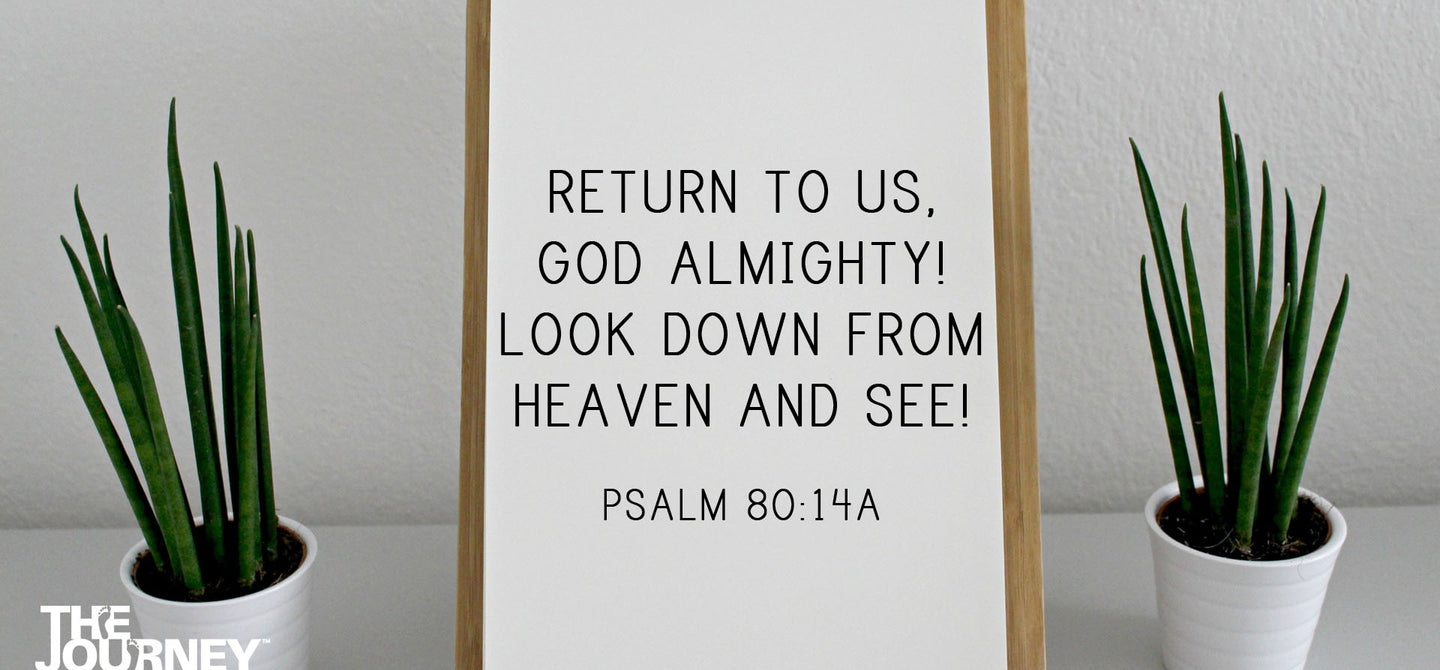 RETURN TO US,
GOD ALMIGHTY!
LOOK DOWN FROM
HEAVEN AND SEE!
PSALM 80:14A
THE
JOURNEY™